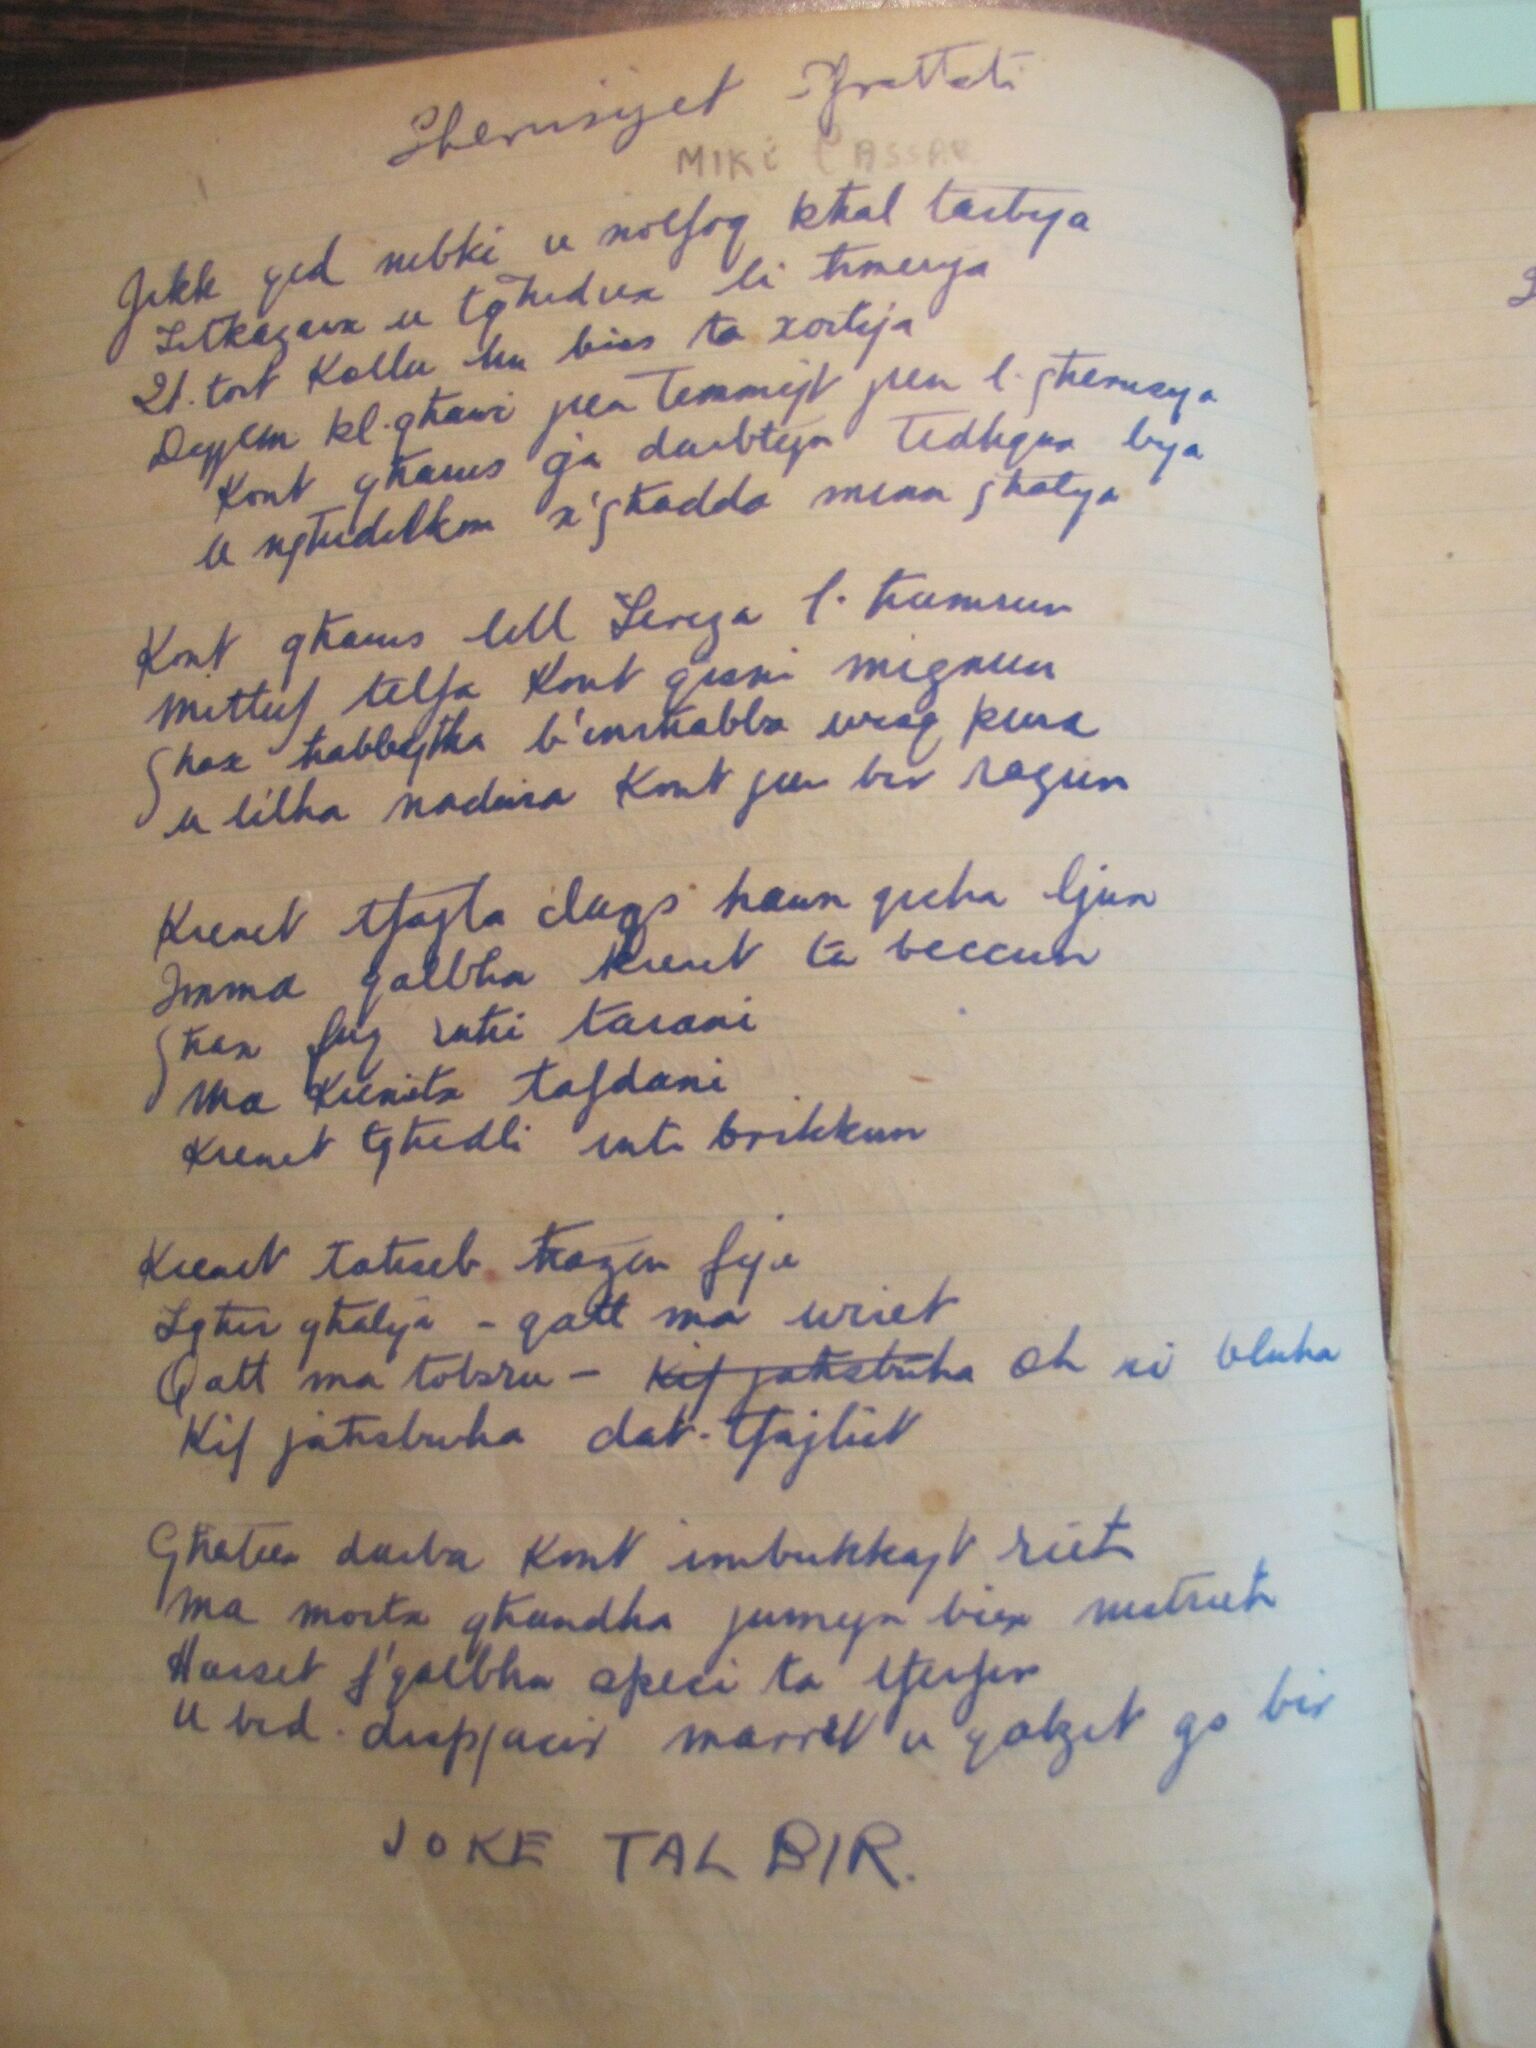 Għerusijet Sfrattati
MIKI CASSAR
Jekk qed nibki u nolfoq ħħal tarbija
Titkażawx u tgħidux li ħmerija
It-tort kollu hu biss ta xortija
Dejjem kl-għawi jien Temmejt jien l-għerusija
Kont għarus ġja darbtejn Tidħqux bija
U ngħidilkom x'għadda minn għalija
Kont għarus lill Tereża l-ħamrun
Mittuf tilfa kont qisni mignun
Għax ħabbejtha b'imħabba wisq pura
u lilha nadura kont jien bir ragun
Kienet tfajla daqs hawn qisha ljun
Imma qalbha kienet ta beccun
Għax fuq ruħi tarani
Ma kienitx tafdani
Kienet tgħidli inti brikkun
Kienet taħseb ħażin fija
Tgħir għalija - qatt ma uriet
Qatt ma tobsru - kif jaħsbuha Oh xi bluha
Kif jaħsbuha dat-tfajliet
Għaliex darba kont imbukkajt rieħ
Ma mortx għandha jumejn biex nistrieħ
Ħasset f'qalbha speci ta tferfir
U bid-dispjacir marret u qabżet go bir
JOKE TAL BIR.